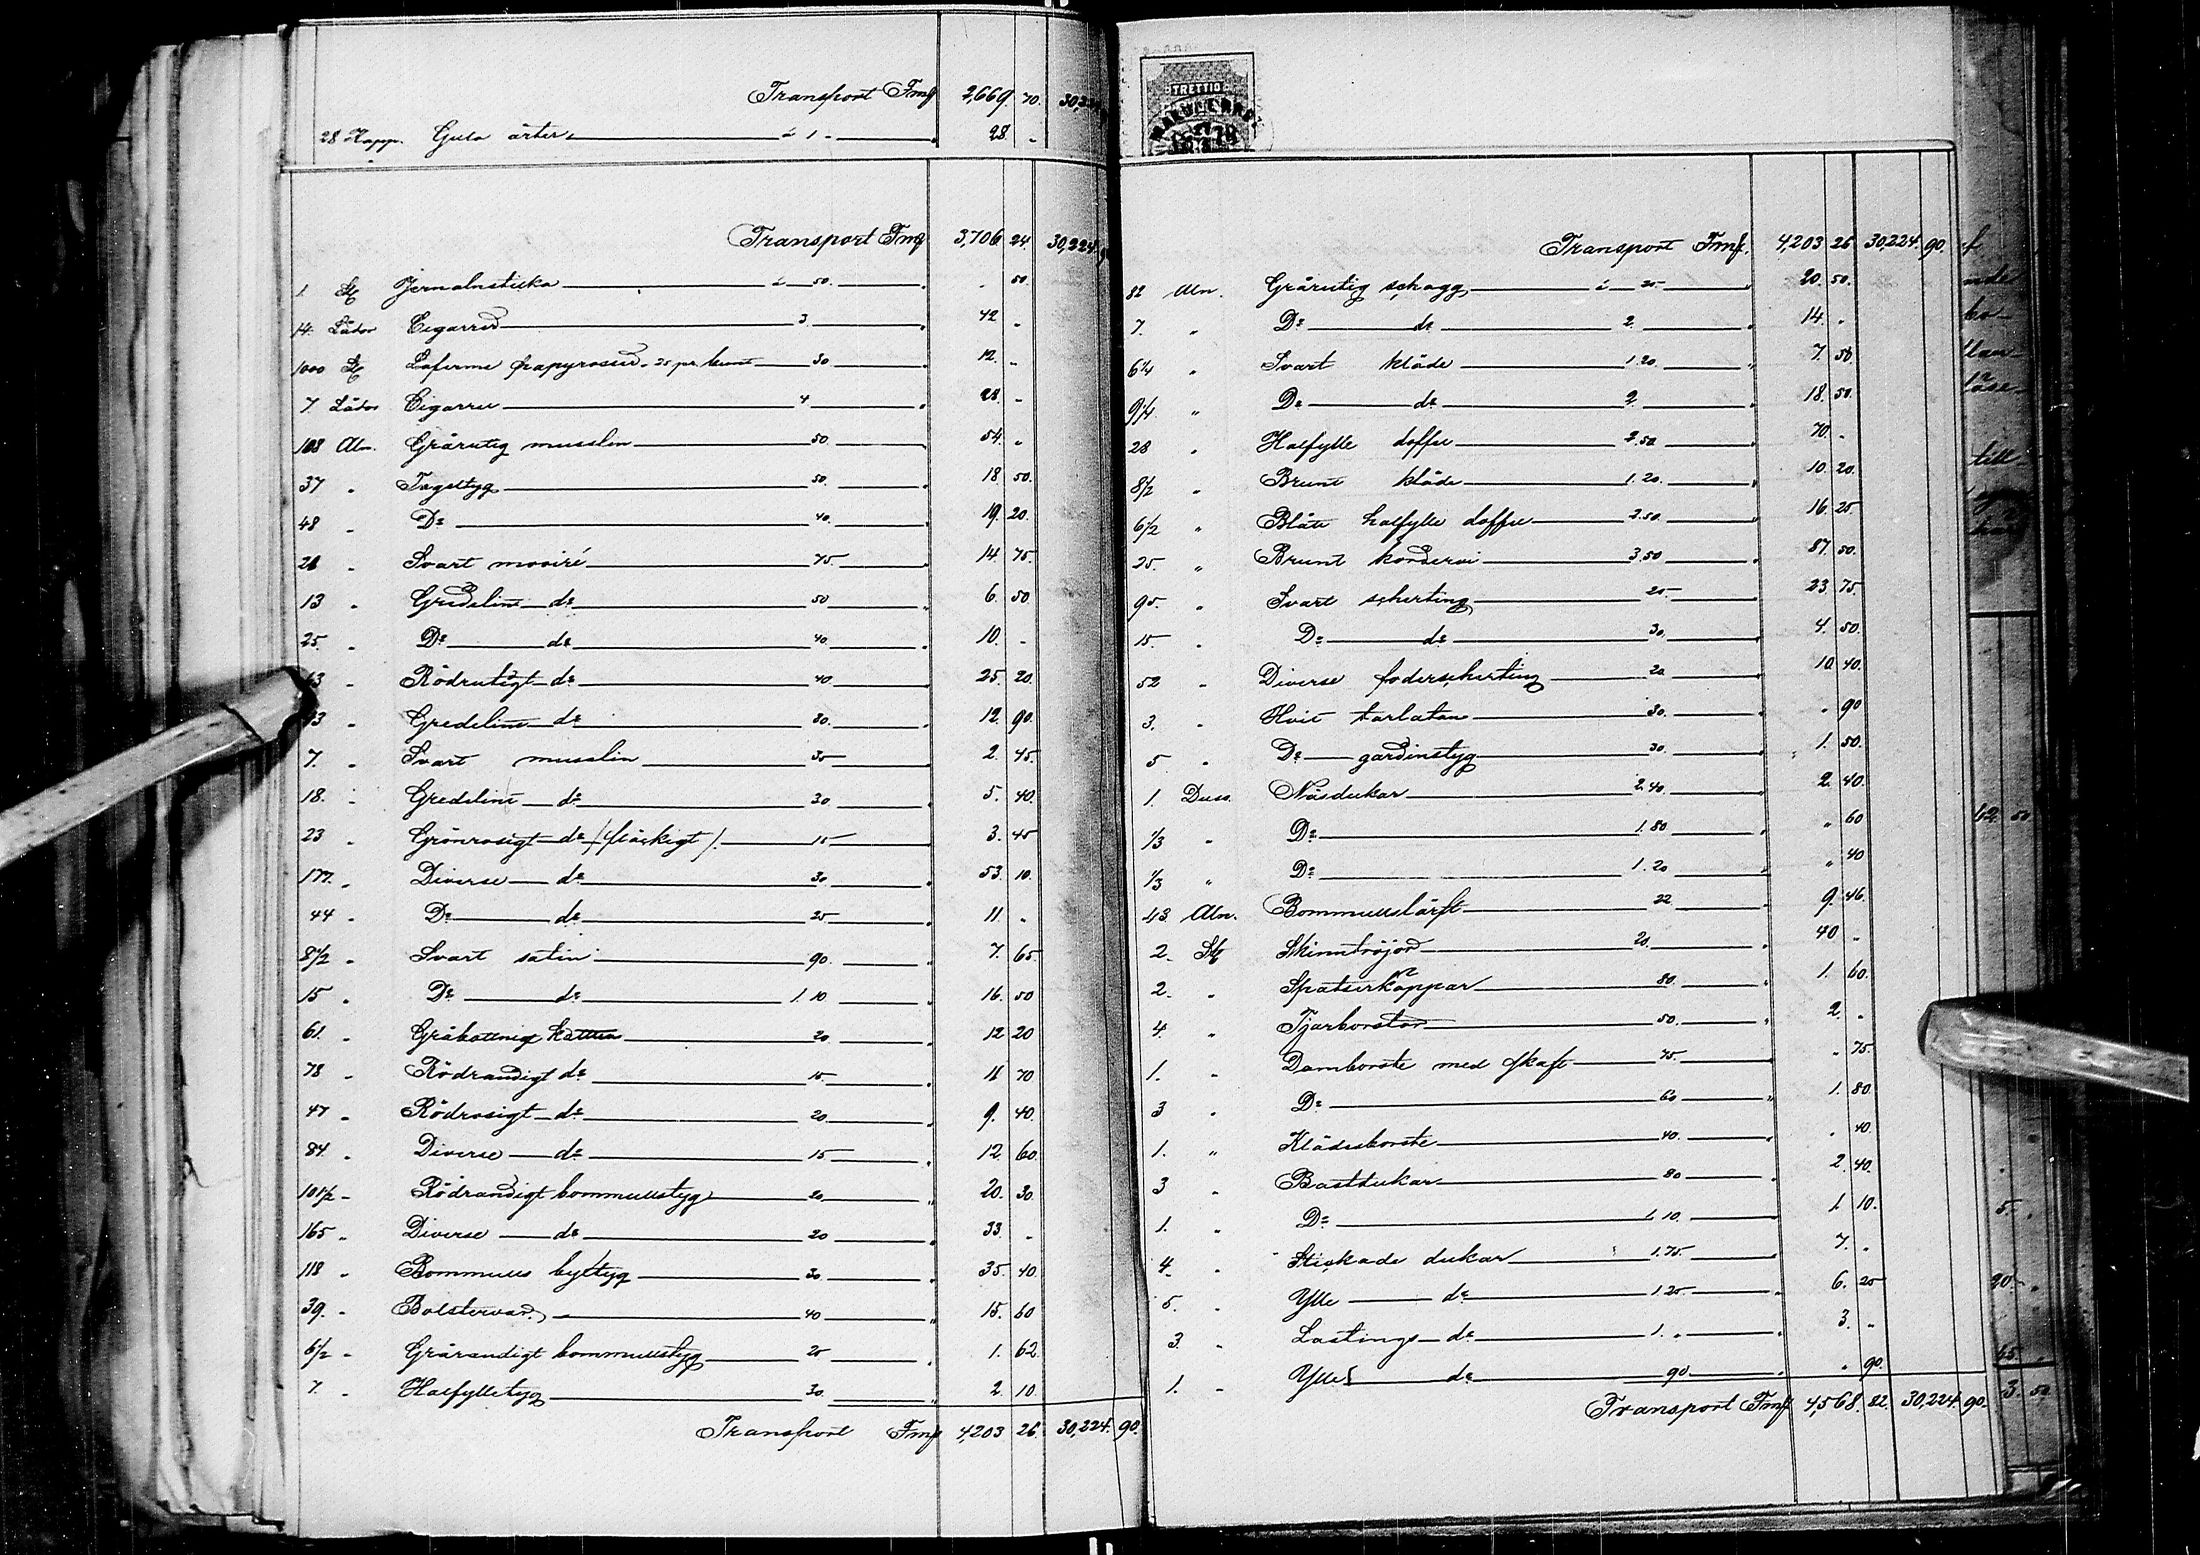 Transport Fmk 2,669. 70. 30,224
28 Kapp. Gula ärter à 1 - 28. -
Transport Fmk 3,706 24. 30,224.
1. St. Jernalnsticka à 50. . 50.
14. Lådor Cigarrer 3. 42 -
1000 St. Laferme papyrosser 25 pr bunt 30 12. -
7. Lådor Cigarrer 4 28. -
108 Aln. Grårutig musslin 50. 54. -
37 " Tageltyg 50. 18 50.
48 " Do 40. 19 20.
21 " Svart moiré 75 14. 75.
13 " Gredelint do 50 6. 50.
25. " Do do 40 10. -
63 " Rödrutigt do 40 25. 20.
43 " Gredelint do 30. 12. 90.
7. " Svart musslin 35 2. 45.
18. " Gredelint do 30 5. 40.
23 " Grönrosigt do /fläckigt/. 15 3. 45
177. " Diverse do 30 53. 10.
44 " Do do 25 11 .
8 1/2 " Svart satin 90. 7. 65.
15 " Do do 1. 10 16. 50
61. " Gråbottnig kattun 20 12 20
78 " Rödrandigt do 15 11 70
47 " Rödrosigt do 20 9. 40.
84 " Diverse do 15 12. 60.
101 1/2 " Rödrandigt bommullstyg 20 20. 30.
165 " Diverse do 20 33. .
118 " Bommulls byltyg 30 35. 40.
39. " Bolstervar 40 15. 60
6 1/2 " Grårandigt bommullstyg 25 1. 62.
7. " Halfylletyg 30. 2. 10.
Transport Fmk 4,203 26. 30,224. 90.
TRETTIO
Transport Fmk. 4,203 26 30,224. 90.
82 Aln. Grårutig schagg à 25 20. 50.
7. " Do do 2. 14. .
6 1/4 " Svart kläde 1.20. 7. 50.
9 1/4 " Do do 2. 18. 50.
28 " Halfylle doffel 2.50. 70. .
8 1/2 " Brunt kläde 1.20. 10. 20.
6 1/2 " Blått halfylle doffel 2.50. 16 25.
25. " Brunt kordervi 3.50 87. 50.
95. " Svart scherting 25 23 75.
15. " Do do 30. 4. 50.
52 " Diverse foderscherting 20. 10. 40.
3. " Hvit tarlatan 30. " 90
5 " Do gardinstyg 30. 1. 50.
1. Duss. Näsdukar 2.40. 2. 40.
1/3 " Do 1.80 " 60
1/3 " Do 1.20 " 40
43. Aln. Bommullslärft 22 9. 46.
2. St. Skinntröjor 20. 40 .
2. " Spatserkäppar 80. 1. 60.
4. " Tjärborstar 50. 2. .
1. " Damborste med skaft 75. " 75.
3 " Do 60 1. 80.
1. " Klädesborste 40. . 40.
3 " Bastdukar 80 2. 40.
1. " Do 1.10. 1. 10.
4. " Stickade dukar 1.75. 7. .
5. " Ylle do 1.25 6. 25
3. " Lastings do 1. " 3. .
1. " Ylle do 90 " 90.
Transport Fmk 4,568. 82. 30,224. 90.